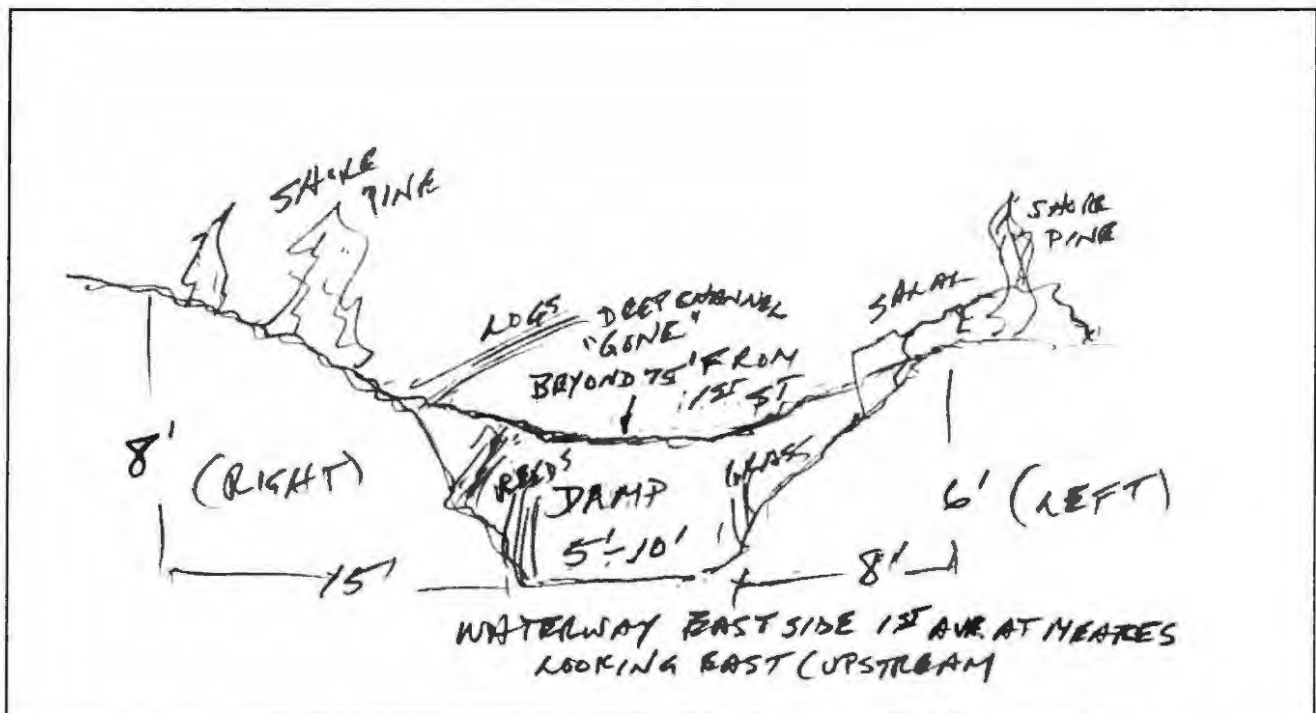 SHORE
PINE
SHORE
PINE
SALAL
LOGS
DEEP CHANNEL
"GONE"
BEYOND 75' FROM
1ST ST
8'
(RIGHT)
REEDS
DAMP
GRASS
5'-10'
6' (LEFT)
15'
8'
WATERWAY EAST SIDE 1ST AVE. AT MEARES
LOOKING EAST (UPSTREAM